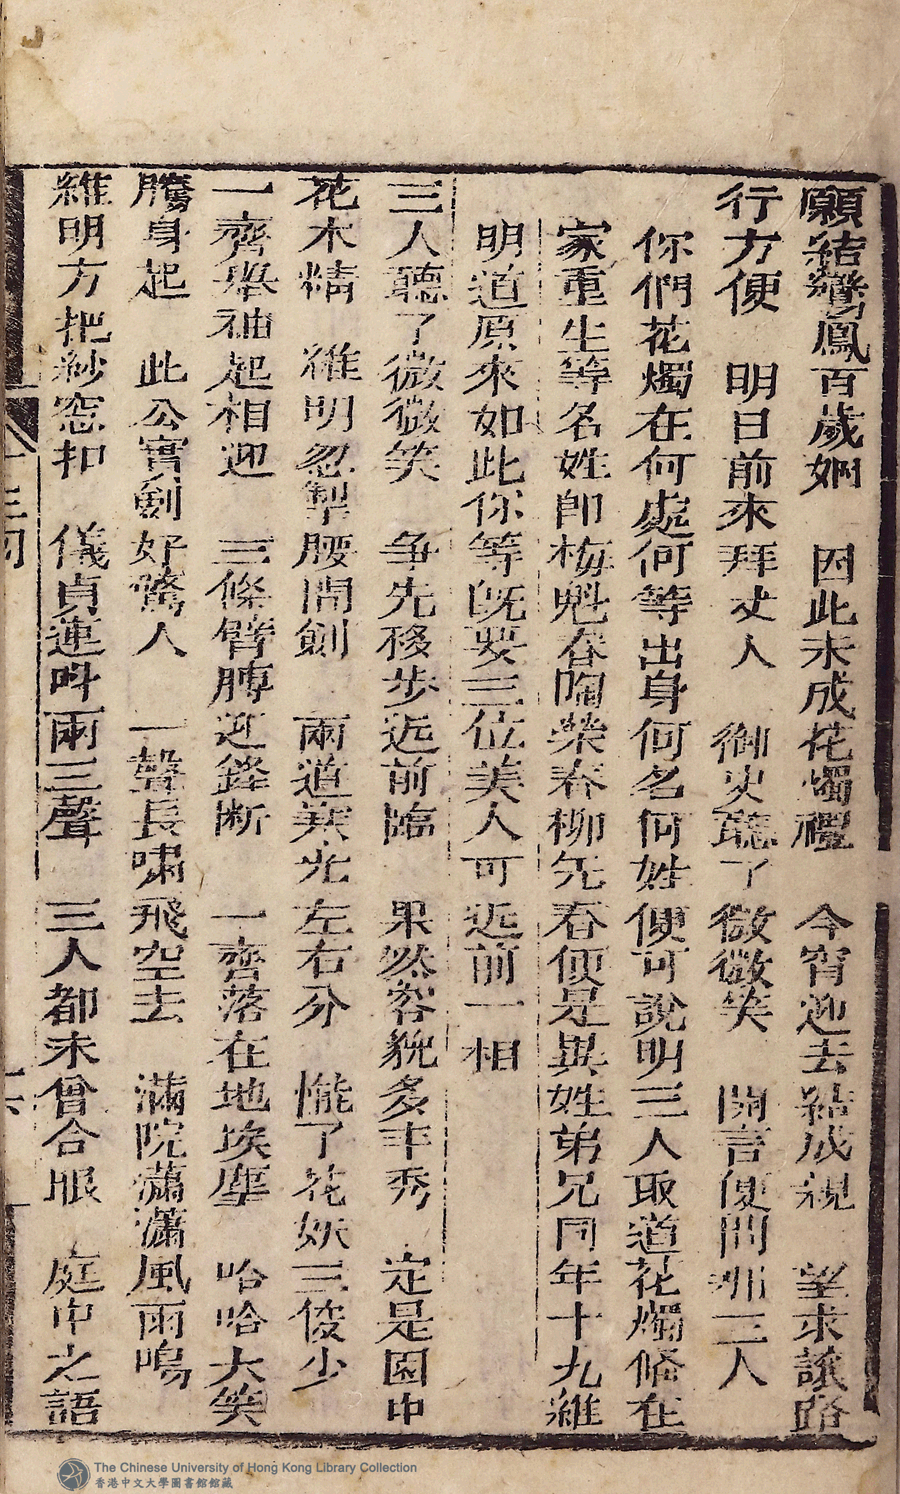 願結鸞鳳百歲姻　因此未成花燭禮　今宵迎去結成親　望求讓路
行方便　明日前來拜丈人　御史聽了微微笑　開言便問那三人
你們花燭在何處何等出身何名何姓便可說明三人取道花燭條在
家重生等名姓即梅魁春陶榮春柳先春便是異姓弟兄同年十九維
明道原來如此你等既要三位美人可近前一相
三人聽了微微笑　争先移步近前臨　果然容貌多丰秀　定是园中
花木精　維明忽掣腰間劍　兩道寒光左右分　慌了花妖三俊少
一齊舉袖起相迎　三條臂膊迎鋒断　一齊落在地埃塵　哈哈大笑
騰身起　此公寳劍好驚人　一聲長嘯飛空去　滿院瀟瀟風雨鳴
維明方把紗窓扣　儀貞蓮呌兩三聲　三人都未曾合眼　庭中之語
The Chinese University of Hong Kong Library Collection
香港中文大學圖書館館藏